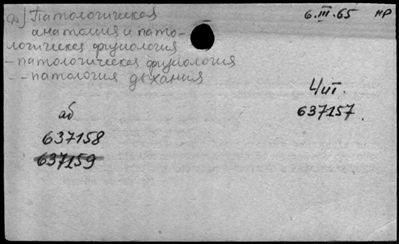 ф) Патологическая 6.III.65 нр
анатомия и пато-
логическая физиология
– патологическая физиология
– – патология дыхания
Чит.
аб 637157.
637158
637159